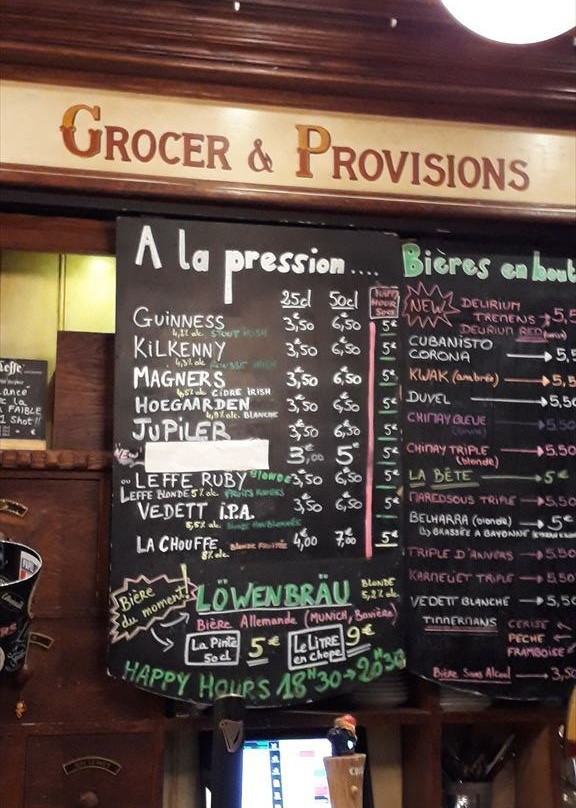 GROCER & PROVISIONS
A la pression....
25cl 50cl HAPPY HOUR 50cl
GUINNESS 3,50 6,50 5€
4,2% alc. STOUT IRISH
KILKENNY 3,50 6,50 5€
4,3% alc. ROUSSE IRISH
MAGNERS 3,50 6,50 5€
4,5% alc. CIDRE IRISH
HOEGAARDEN 3,50 6,50 5€
4,9% alc. BLANCHE
JUPILER 3,50 6,50 5€
NEW 3,00 5€
ou LEFFE RUBY BLONDE 3,50 6,50 5€
LEFFE BLONDE 5% alc. FRUITS ROUGES
VEDETT i.P.A. 3,50 6,50 5€
5,5% alc. BLONDE
LA CHOUFFE BLONDE FRUITÉE 4,00 7,00 5€
8% alc.
Bière du moment! LÖWENBRÄU BLONDE 5,2% alc.
Bière Allemande (MUNICH, Bavière)
La Pinte 50cl 5€ Le LITRE en chope 9€
HAPPY HOURS 18H30 → 20H30
Bières en bout
NEW DELIRIUM
TREMENS → 5,5
DELIRIUM RED
CUBANISTO
CORONA → 5,5
KWAK (ambrée) → 5,5
DUVEL → 5,50
CHIMAY BLEUE 5,50
CHIMAY TRIPLE → 5.50
(blonde)
LA BÊTE → 5€
MAREDSOUS TRIPLE → 5,50
BELHARRA (blonde) → 5€
BRASSÉE A BAYONNE
TRIPLE D'ANVERS → 5.50
KARMELIET TRIPLE → 5.50
VEDETT BLANCHE → 5,50
TIMMERMANS CERISE
PECHE
FRAMBOISE
Bière Sans Alcool → 3,50